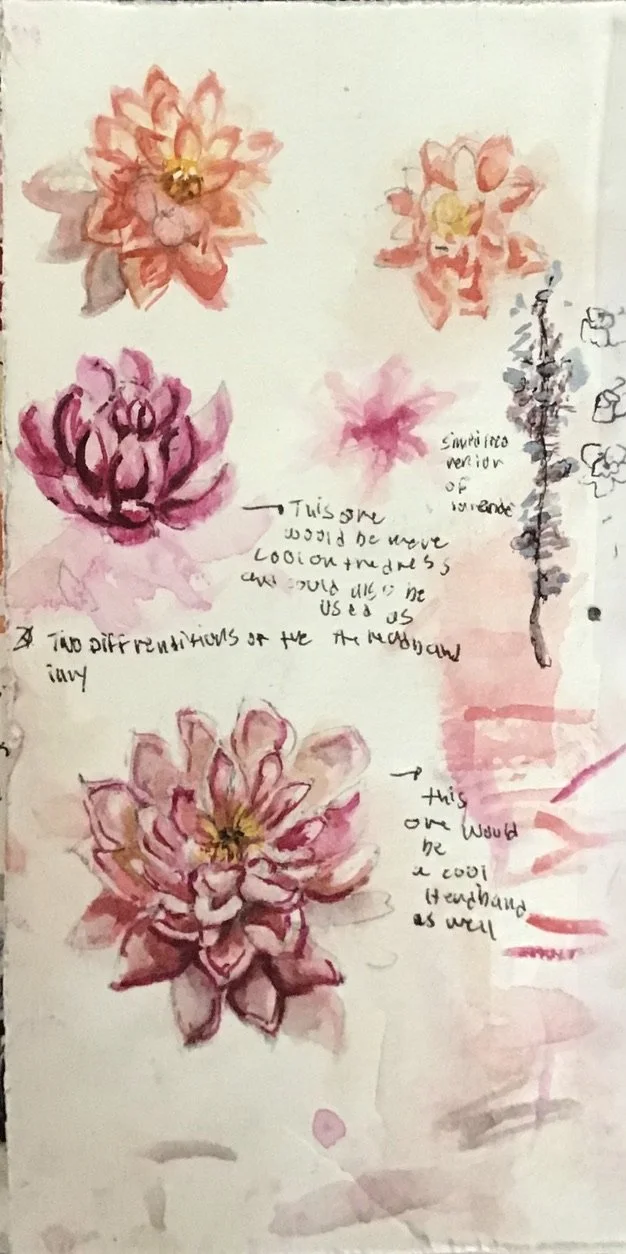 simplified
version
of
lavender
This one
would be more
cool on the dress
and could also be
used as
Two Diff renditions of the the headband
inny
this
one would
be
a cool
Headband
as well